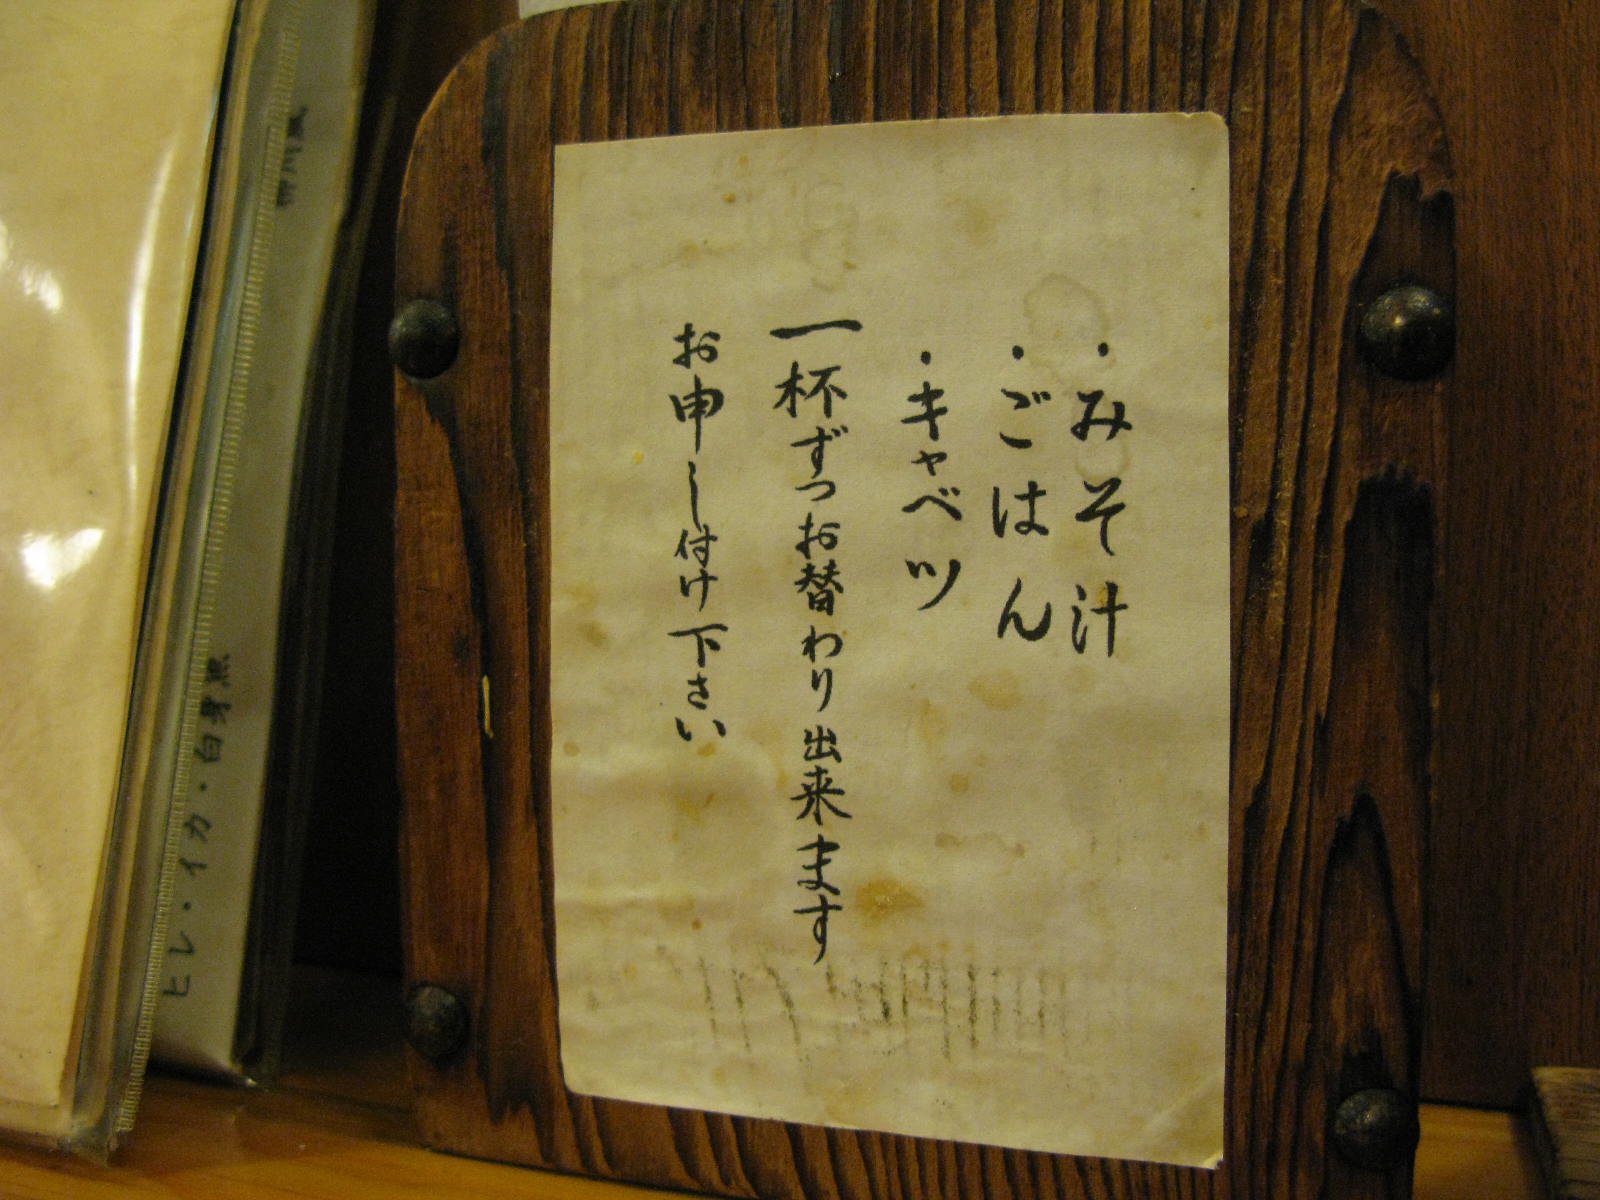 ・みそ汁
・ごはん
・キャベツ
一杯ずつお替わり出来ます
お申し付け下さい
ヒレ・イカ・白身魚